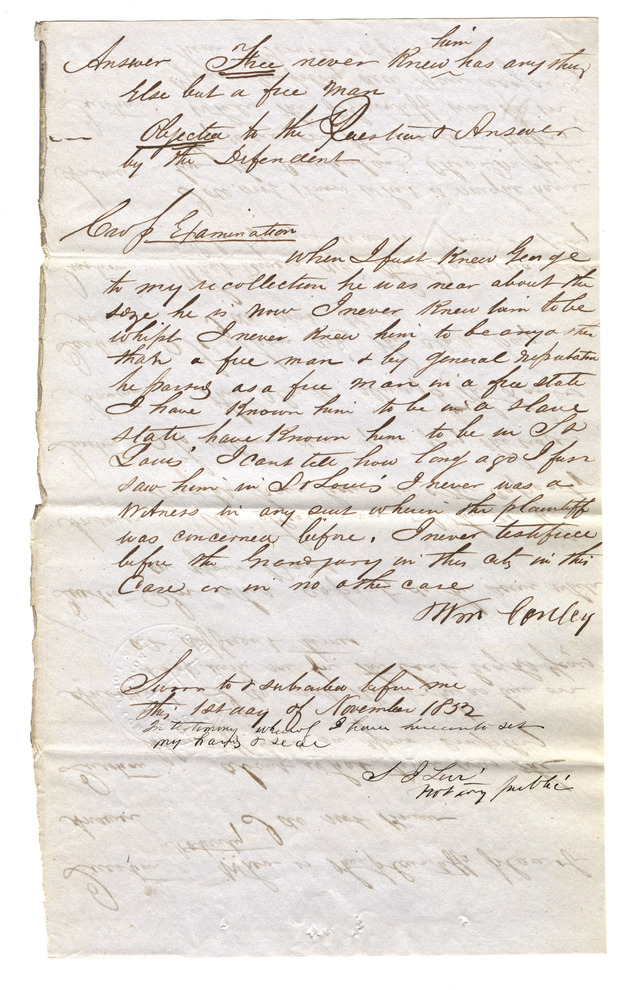 him
Answer Free never Knew ^ has any thing
Else but a free man
Objected to the Question & Answer
by the Defendent
Cross Examination
When I first Knew George
to my recollection he was near about the
size he is now I never Knew him to be
whipt I never Knew him to be any other
than a free man & by general reputation
he passes as a free man in a free state
I have Known him to be in a slave
state have Known him to be in St
Louis I cant tell how long ago I first
saw him in St Louis I never was a
Witness in any suit wherein the plaintiff
was concerned before. I never testified
before the Grand jury in this city in this
Case or in no other case
Wm Conley
Sworn to & subscribed before me
this 1st day of November 1852
In testimony whereof I have hereunto set
my hand & seal
S J Levi
Notary public